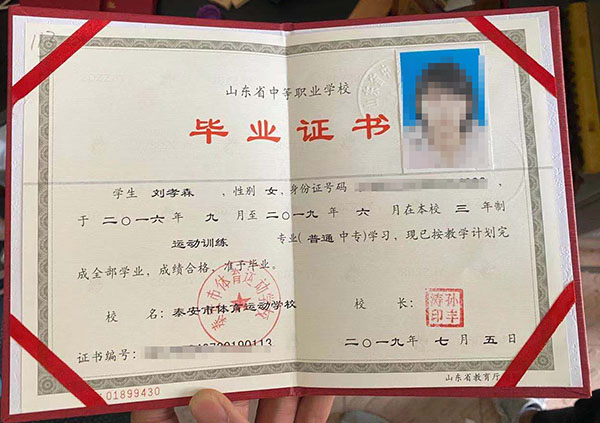 山东省中等职业学校
毕业证书
学生 刘孝森 ,性别 女,身份证号码
于 二〇一六 年 九 月至 二〇一九 年 六 月在本校 三 年制
运动训练 专业(普通中专)学习,现已按教学计划完
成全部学业,成绩合格,准予毕业。
校 名:泰安市体育运动学校 校 长:
证书编号:
二〇一九年 七月 五日
01899430
山东省教育厅